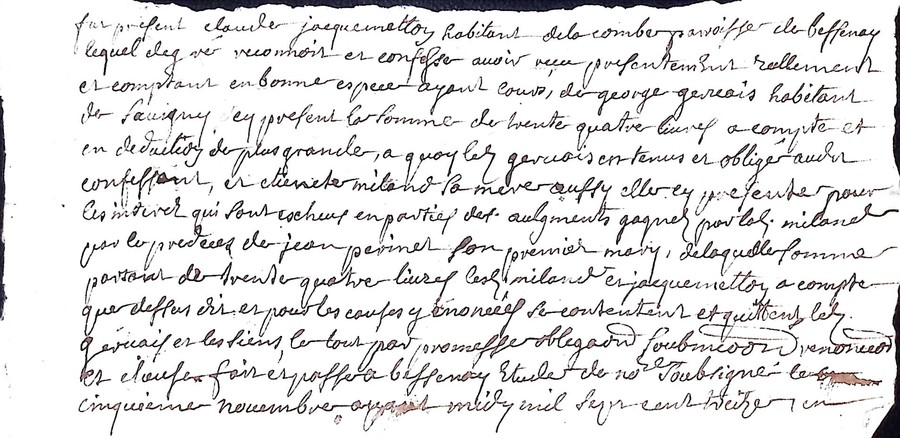 fut présent claude jacquemetton habitant de la combe parroisse de bessenay
lequel de gré reconnoit et confesse avoir reçu présentement reellement
et comptant en bonne espece ayant cours, de george gervais habitant
de Savigny cy présent la somme de trente quatre livres a compte et
en deduction de plus grande, a quoy led. gervais est tenus et obligé audit
confessant, et etiennete miland sa mere aussy elle cy presente pour
les interets qui sont escheus en parties des augments gagnez par lad. miland
par le predeces de jean perinet son premier mary, de laquelle somme
partant de trente quatre livres lesd. miland et jacquemetton a compte
que dessus dit et pour les causes y enoncées se contentent et quittent led.
gervais et les siens, le tout par promesse obligaon soubmission renonciaon
et clause fait et passé a bessenay Etude de nore soubsigné le
cinquieme novembre avant midy mil sept cent treize en